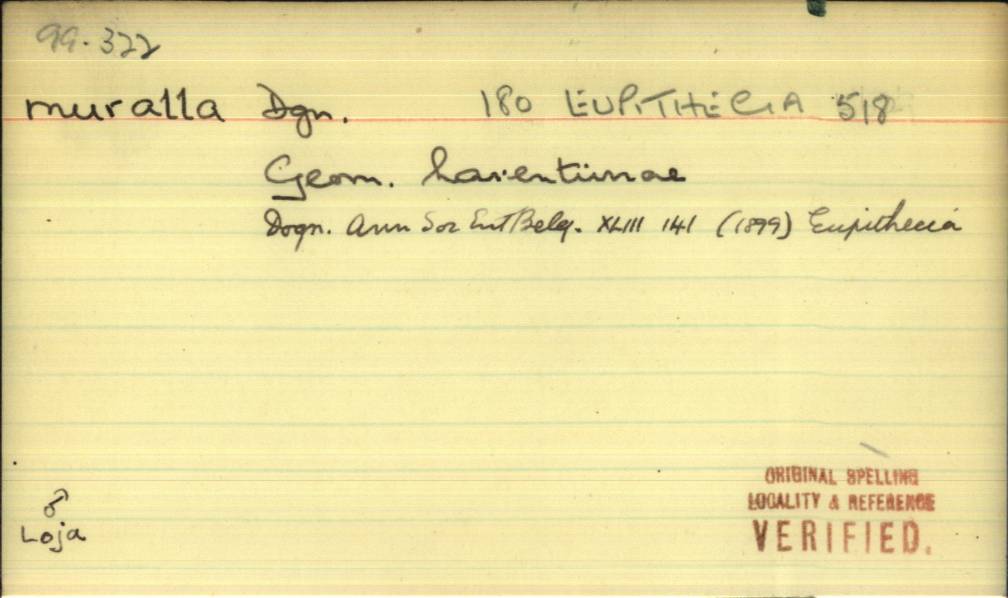 99.322
muralla Dgn. 180 EUPITHECIA 518
Geom. Larentiinae
Dogn. Ann Soc Ent Belg. XLIII 141 (1899) Eupithecia
♂
Loja
ORIGINAL SPELLING
LOCALITY & REFERENCE
VERIFIED.